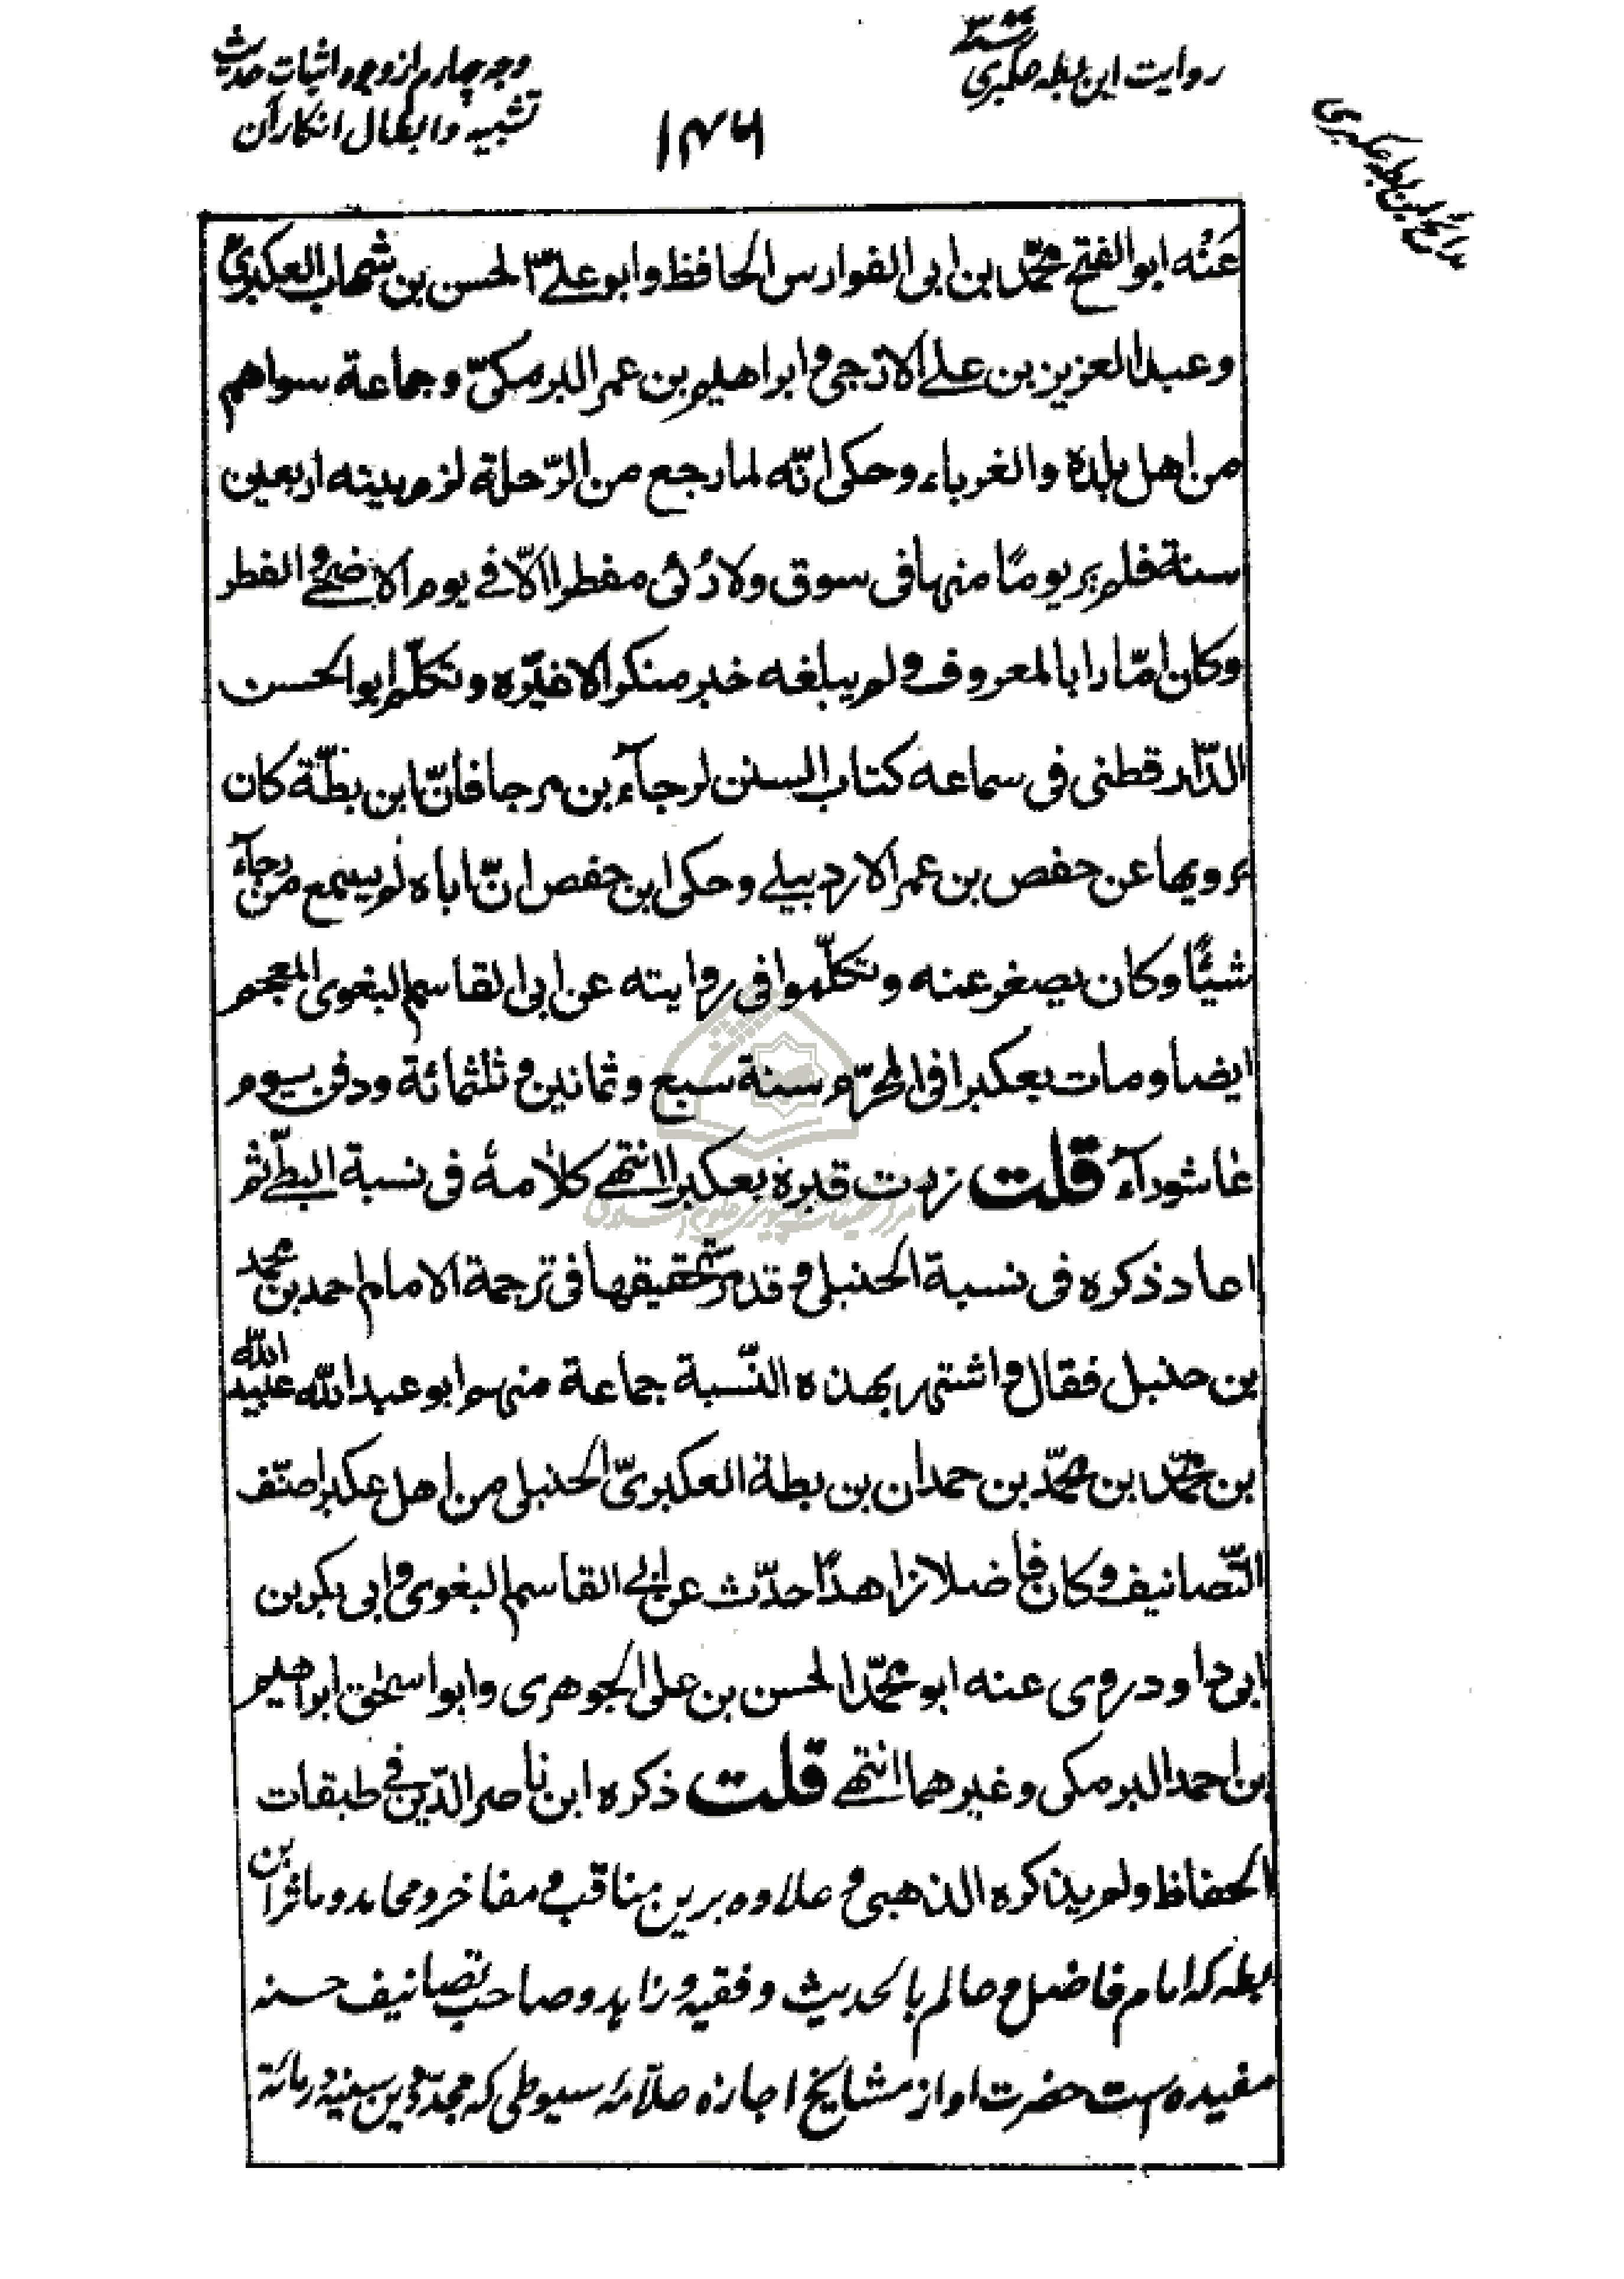 روایت ابن بطه عکبری
۱۴۶
وجه چهارم از وجوه اثبات حدیث
تشبیه و ابطال انکار آن
مدائح ابن بطه عکبری
عَنْه ابو الفتح محمّد بن ابی الفوارس الحافظ وابو علیّ الحسن بن شهاب العکبریّ
وعبد العزیز بن علی الازجی وابراهیم بن عمر البرمکیّ وجماعة سواهم
من اهل بلده والغرباء وحکی انّه لما رجع من الرّحلة لزم بیته اربعین
سنة فلم یر یومًا منها فی سوق ولا رُئی مفطرا الّا فی یوم الاضحی والفطر
وکان امّارا بالمعروف ولم یبلغه خبر منکر الا غیّره وتکلّم ابو الحسن
الدّارقطنی فی سماعه کتاب السنن لرجآء بن مرجا فانّ ابن بطّة کان
یرویها عن حفص بن عمر الاردبیلی وحکی ابن حفص انّ اباه لم یسمع من رجآء
شیئًا وکان یصغر عنه وتکلّموا فی روایته عن ابی القاسم البغوی المعجم
ایضا ومات بعکبرا فی المحرّم سنة سبع وثمانین وثلثمائة ودفن بیوم
عاشورآء قلت زرت قبره بعکبرا انتهی کلامه فی نسبة البطّی ثم
اعاد ذکره فی نسبة الحنبلی وقد مرّ تحقیقها فی ترجمة الامام احمد بن محمد
بن حنبل فقال واشتهر بهذه النّسبة جماعة منهم ابو عبد الله عبید الله
بن محمّد بن محمّد بن حمدان بن بطة العکبریّ الحنبلی من اهل عکبرا صنّف
التّصانیف وکان فاضلا زاهدًا حدّث عن ابی القاسم البغوی وابی بکر بن
ابی داود روی عنه ابو محمّد الحسن بن علی الجوهری وابو اسحٰق ابراهیم
بن احمد البرمکی وغیرهما انتهی قلت ذکره ابن ناصر الدّین فی طبقات
الحفاظ ولم یذکره الذهبی وعلاوه برین مناقب و مفاخر و محامد و مآثر ابن
بطه که امام فاضل و عالم بالحدیث و فقیه و زاهد و صاحب تصانیف حسنه
مفیده است حضرت او از مشایخ اجازه علّامهٔ سیوطی که مجدّد دین سنیه در مائة